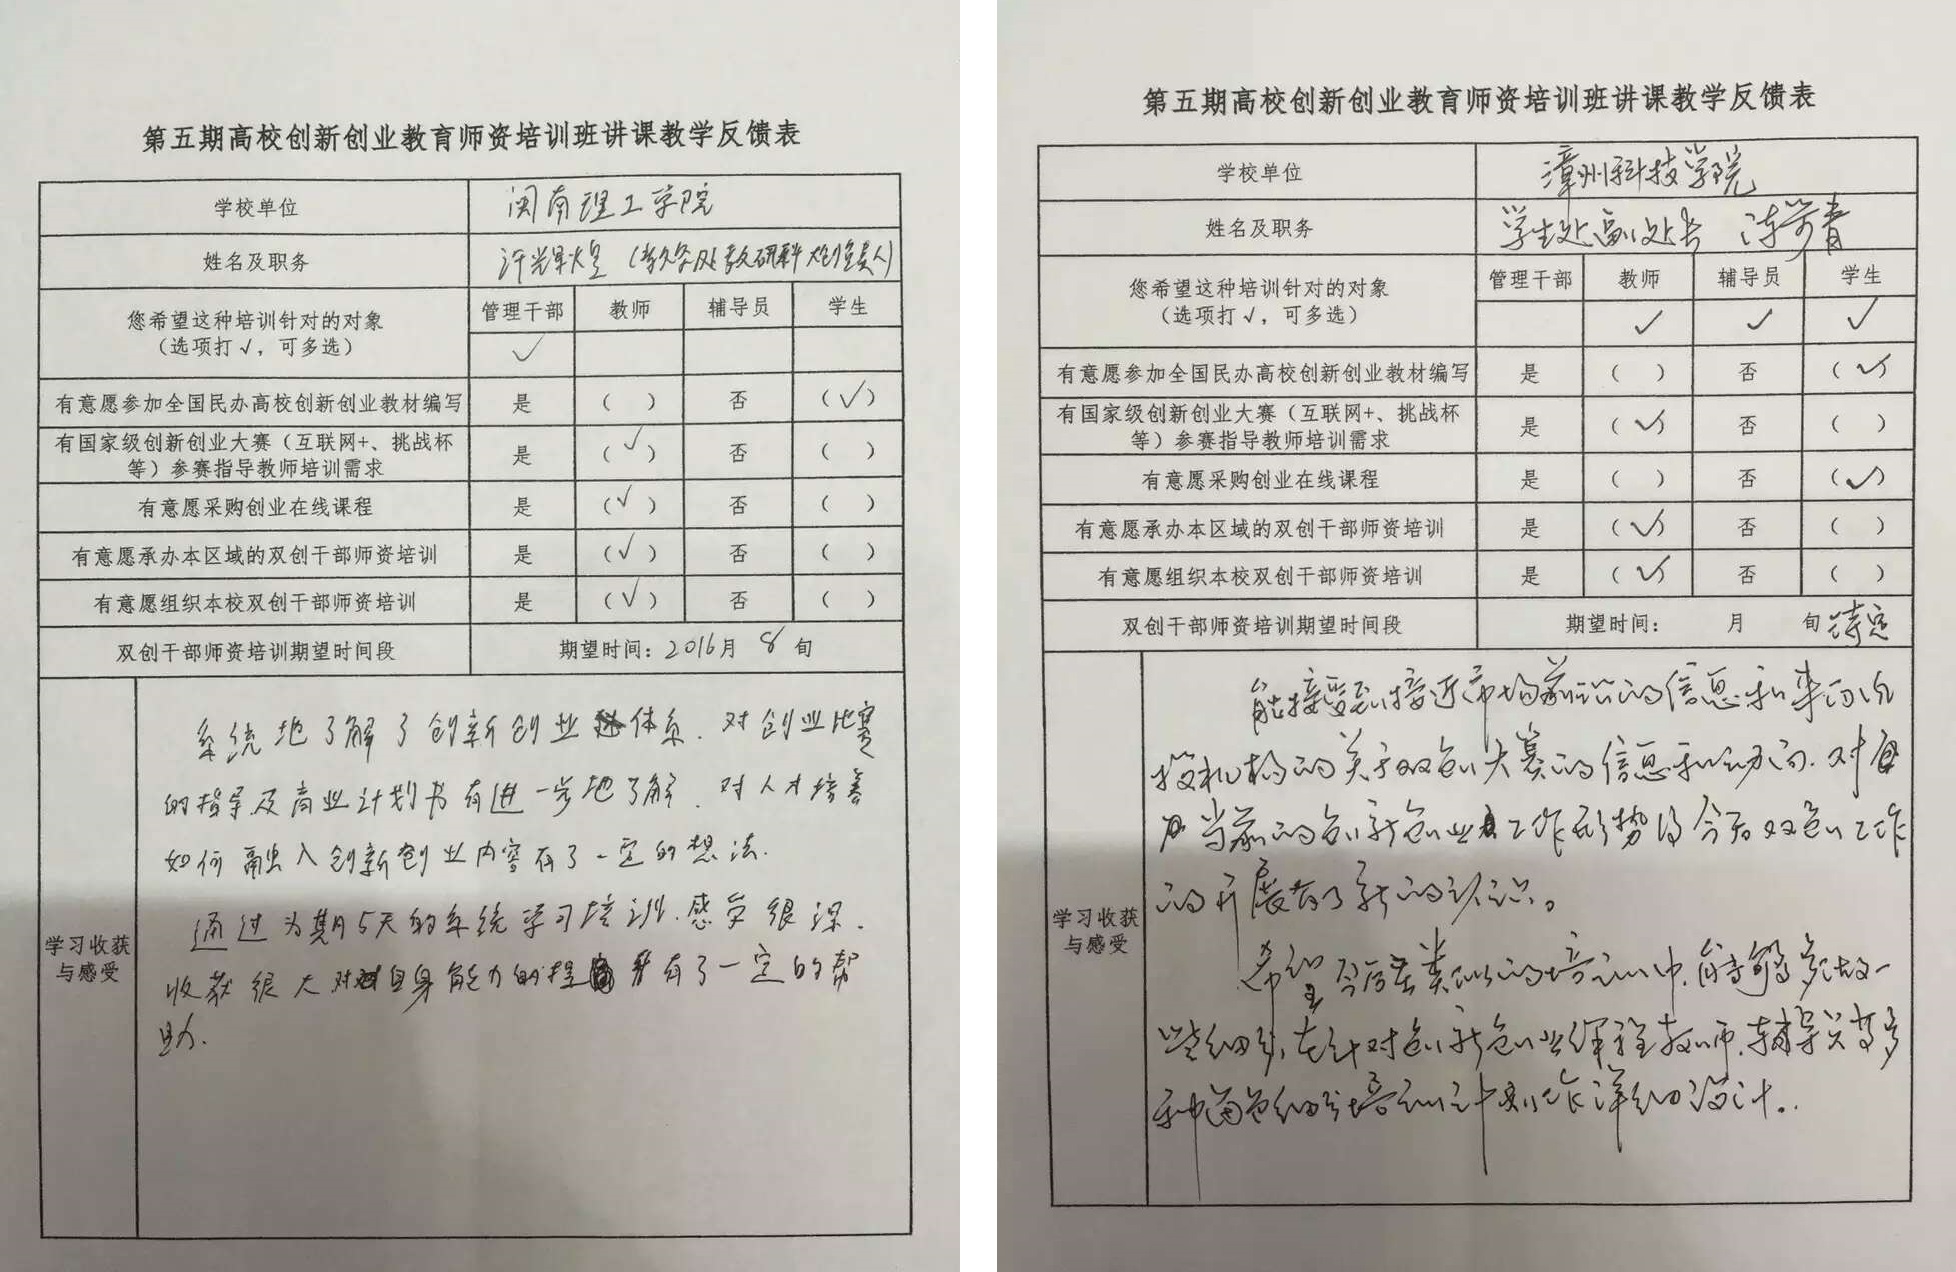 第五期高校创新创业教育师资培训班讲课教学反馈表
学校单位 闽南理工学院
姓名及职务 许辉煌（教务处教研科 负责人）
您希望这种培训针对的对象
（选项打√，可多选）
管理干部 教师 辅导员 学生
√
有意愿参加全国民办高校创新创业教材编写 是 （ ） 否 （√）
有国家级创新创业大赛（互联网+、挑战杯
等）参赛指导教师培训需求 是 （√） 否 （ ）
有意愿采购创业在线课程 是 （√） 否 （ ）
有意愿承办本区域的双创干部师资培训 是 （√） 否 （ ）
有意愿组织本校双创干部师资培训 是 （√） 否 （ ）
双创干部师资培训期望时间段 期望时间：2016月 8 旬
学习收获
与感受
系统地了解了创新创业体系．对创业比赛
的指导及商业计划书有进一步地了解．对人才培养
如何融入创新创业内容有了一定的想法．
通过为期5天的系统学习培训．感受很深．
收获很大 对自身能力的提升有了一定的帮
助．
第五期高校创新创业教育师资培训班讲课教学反馈表
学校单位 漳州科技学院
姓名及职务 学生处副处长
您希望这种培训针对的对象
（选项打√，可多选）
管理干部 教师 辅导员 学生
√ √ √
有意愿参加全国民办高校创新创业教材编写 是 （ ） 否 （√）
有国家级创新创业大赛（互联网+、挑战杯
等）参赛指导教师培训需求 是 （√） 否 （ ）
有意愿采购创业在线课程 是 （ ） 否 （√）
有意愿承办本区域的双创干部师资培训 是 （√） 否 （ ）
有意愿组织本校双创干部师资培训 是 （√） 否 （ ）
双创干部师资培训期望时间段 期望时间： 月 旬 待定
学习收获
与感受
能接受到接近市场前沿的信息和来自风
投机构的关于双创大赛的信息和动向．对
当前的创新创业工作形势 今后双创工作
的开展有了新的认识。
希望今后在类似的培训中，能够多做一
些细分，在针对创新创业课程教师，辅导员等多
种角色细分培训计划作详细设计。